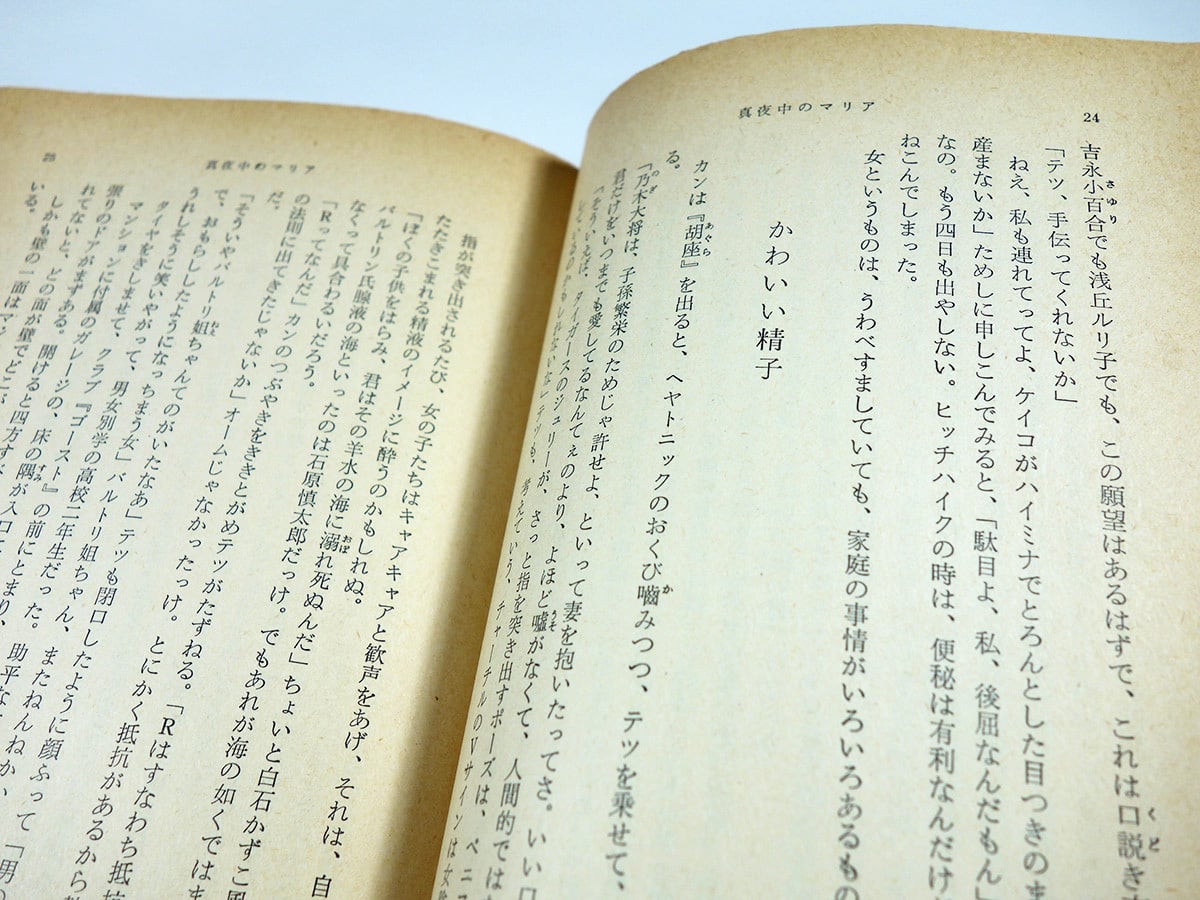 24
真夜中のマリア
吉永小百合でも浅丘ルリ子でも、この願望はあるはずで、これは口説き
さゆり
くど
「テツ、手伝ってくれないか」
ねえ、私も連れてってよ、ケイコがハイミナでとろんとした目つきのま
産まないか」ためしに申しこんでみると、「駄目よ、私、後屈なんだもん」
なの。もう四日も出やしない。ヒッチハイクの時は、便秘は有利なんだけ
ねこんでしまった。
女というものは、うわべすましていても、家庭の事情がいろいろあるもの
かわいい精子
カンは『胡座』を出ると、ヘヤトニックのおくび嚙みつつ、テツを乗せて、
あぐら
か
る。
「乃木大将は、子孫繁栄のためじゃ許せよ、といって妻を抱いたってさ。いい
のぎ
君だけをいつまでも愛してるなんてぇのより、よほど嘘がなくて、人間的では
うそ
「そういえば、タイガースのジュリーが、さっと指を突き出すポーズは、ペニス
しているのかもしれないな」テツも、考えていう、チャーチルのVサインは女
25
真夜中のマリア
指が突き出されるたび、女の子たちはキャアキャアと歓声をあげ、それは、自
たたきこまれる精液のイメージに酔うのかもしれぬ。
「ぼくの子供をはらみ、君はその羊水の海に溺れ死ぬんだ」ちょいと白石かずこ風
おぼ
バルトリン氏腺液の海といったのは石原慎太郎だっけ。でもあれが海の如くではま
なくって具合わるいだろう。
「Rってなんだ」カンのつぶやきをききとがめテツがたずねる。「Rはすなわち抵抗
の法則に出てきたじゃないか」オームじゃなかったっけ。とにかく抵抗があるから
だ。
「そういやバルトリ姐ちゃんてのがいたなあ」テツも閉口したように顔ふって「男の
ねえ
で、おもらししたようになっちまう女」バルトリ姐ちゃん、またねんねか、
うれしそうに笑いやがって、男女別学の高校二年生だった。助平な
タイヤをきしませて、クラブ『ゴースト』の前にとまり、
マンションに付属のガレージの、床の隅が入口に
すみ
張りのドアがまずある。開けると四方すべ
れてないと、どの面が壁でどこが
しかも壁の一面はマン
いる。